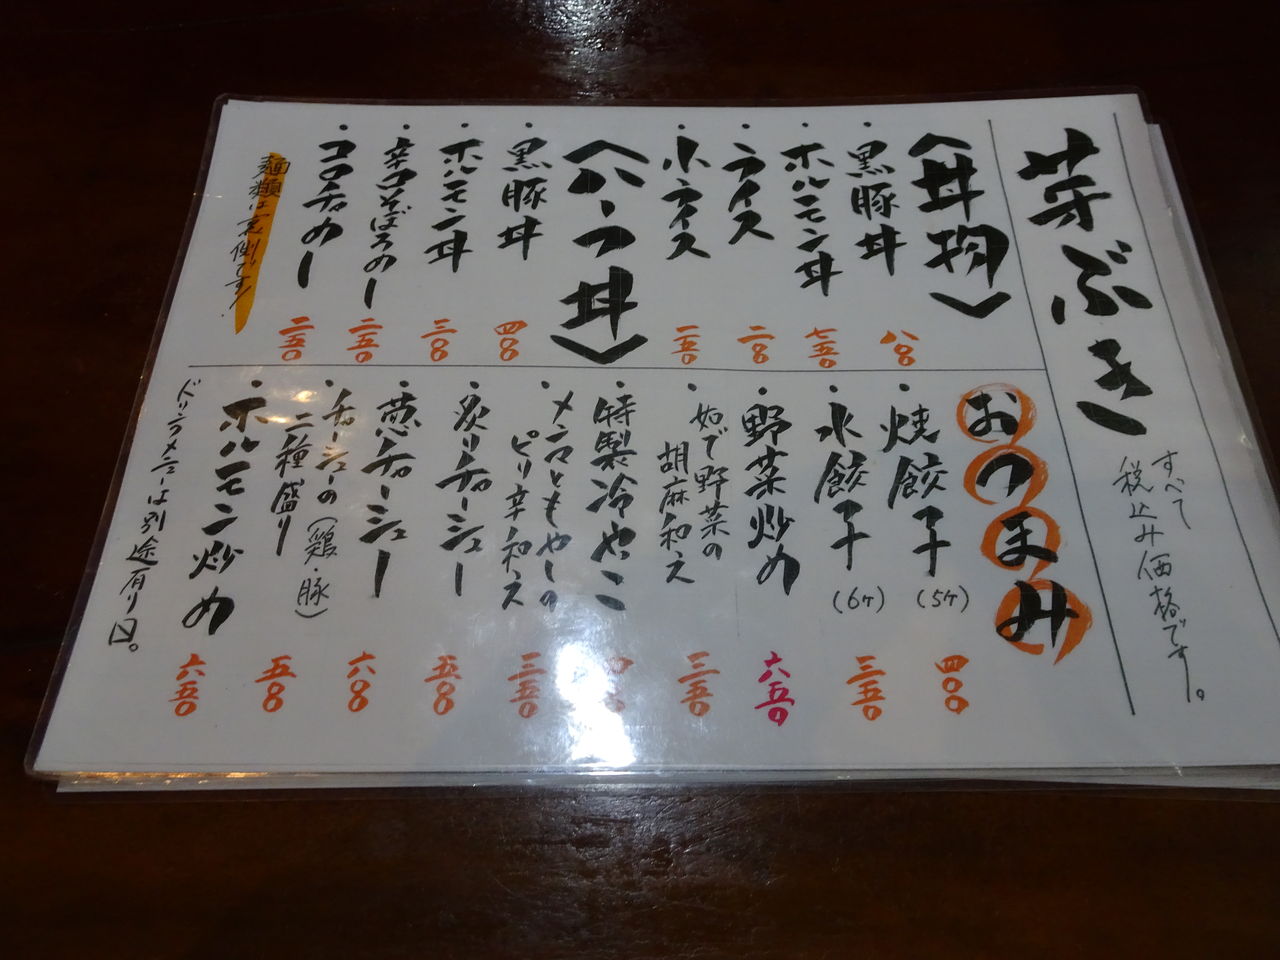 芽ぶき
すべて
税込み価格です。
〈丼物〉
・黒豚丼 八〇〇
・ホルモン丼 七五〇
・ライス 二〇〇
・小ライス 一五〇
〈ハーフ丼〉
・黒豚丼 四〇〇
・ホルモン丼 三〇〇
・辛コそぼろめし 二五〇
・コロチャめし 二五〇
麺類は裏側です!
おつまみ
・焼餃子(5ヶ) 四〇〇
・水餃子(6ヶ) 三五〇
・野菜炒め 六五〇
・茹で野菜の
胡麻和え 三五〇
・特製冷やっこ
・メンマともやしの
ピリ辛和え 三五〇
・炙りチャーシュー 五〇〇
・葱チャーシュー 六〇〇
・チャーシューの(鶏・豚)
二種盛り 五〇〇
・ホルモン炒め 六五〇
ドリンクメニューは別途有り〼。